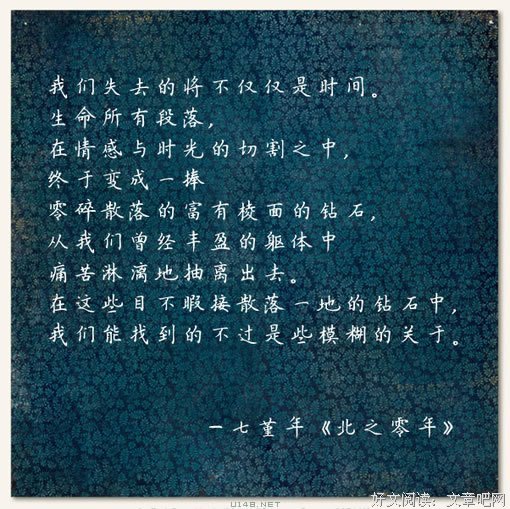 我们失去的将不仅仅是时间。
生命所有段落，
在情感与时光的切割之中，
终于变成一捧
零碎散落的富有棱面的钻石，
从我们曾经丰盈的躯体中
痛苦淋漓地抽离出去。
在这些目不暇接散落一地的钻石中，
我们能找到的不过是些模糊的关于。
—七堇年《北之零年》
U148.NET
好文阅读：文章吧网